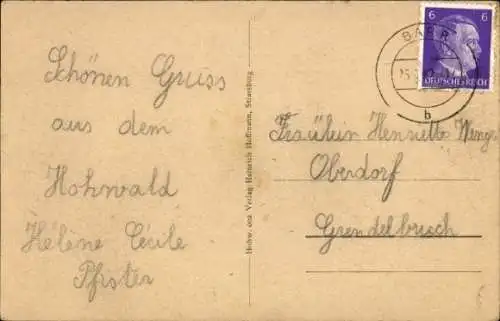 Schönen Gruss
aus dem
Hohwald
Hélène Cécile
Pfister
Hochw. und Verlag Heinrich Hoffmann, Strassburg
6 6
DEUTSCHES REICH
BARR
b
Fräulein Henriette
Oberdorf
Grendelbruch